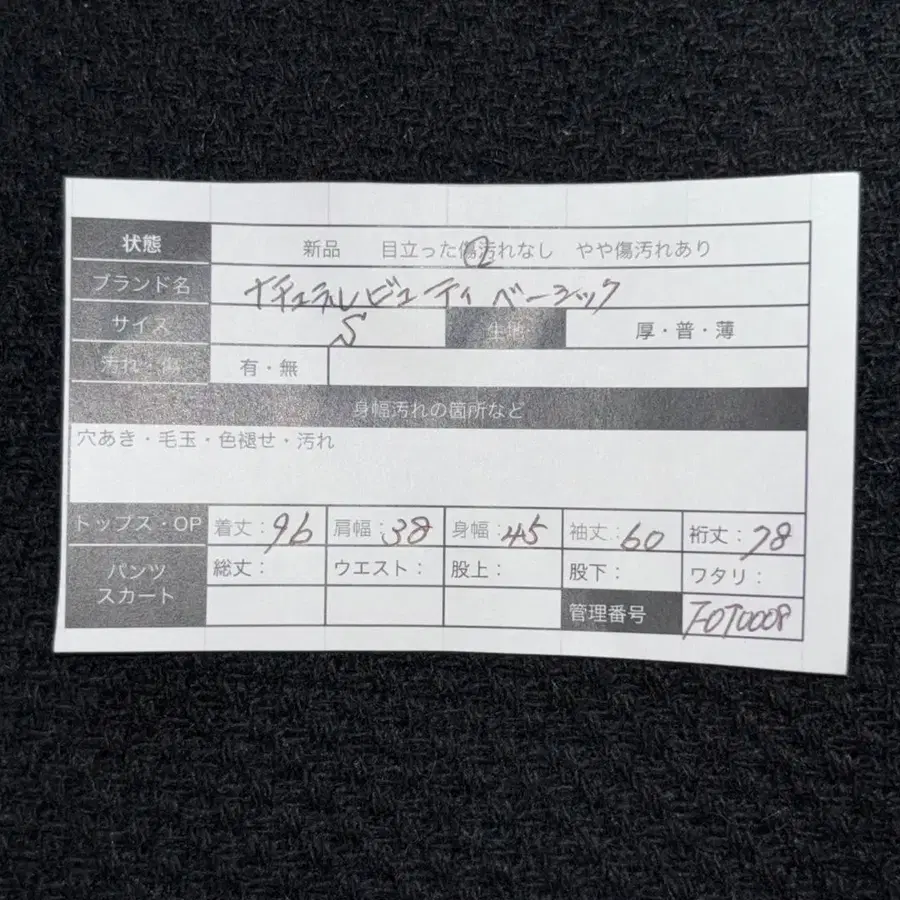 状態 新品 目立った傷汚れなし やや傷汚れあり
ブランド名 ナチュラルビューティベーシック
サイズ S 生地 厚・普・薄
汚れ・傷 有・無
身幅汚れの箇所など
穴あき・毛玉・色褪せ・汚れ
トップス・OP 着丈：96 肩幅：38 身幅：45 袖丈：60 裄丈：78
パンツ 総丈： ウエスト： 股上： 股下： ワタリ：
スカート 管理番号 FOT0008